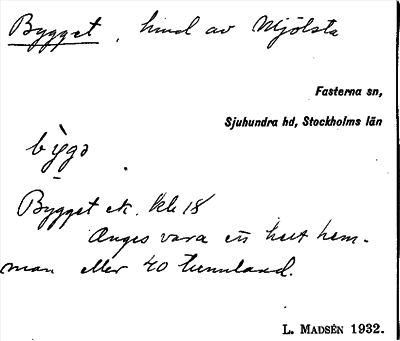 Bygget, hmd av Mjölsta
Fasterna sn,
Sjuhundra hd, Stockholms län
bỳgə
Bygget ek. kbl 18
Anges vara ett helt hem-
man eller 40 tunnland.
L. MADSÉN 1932.